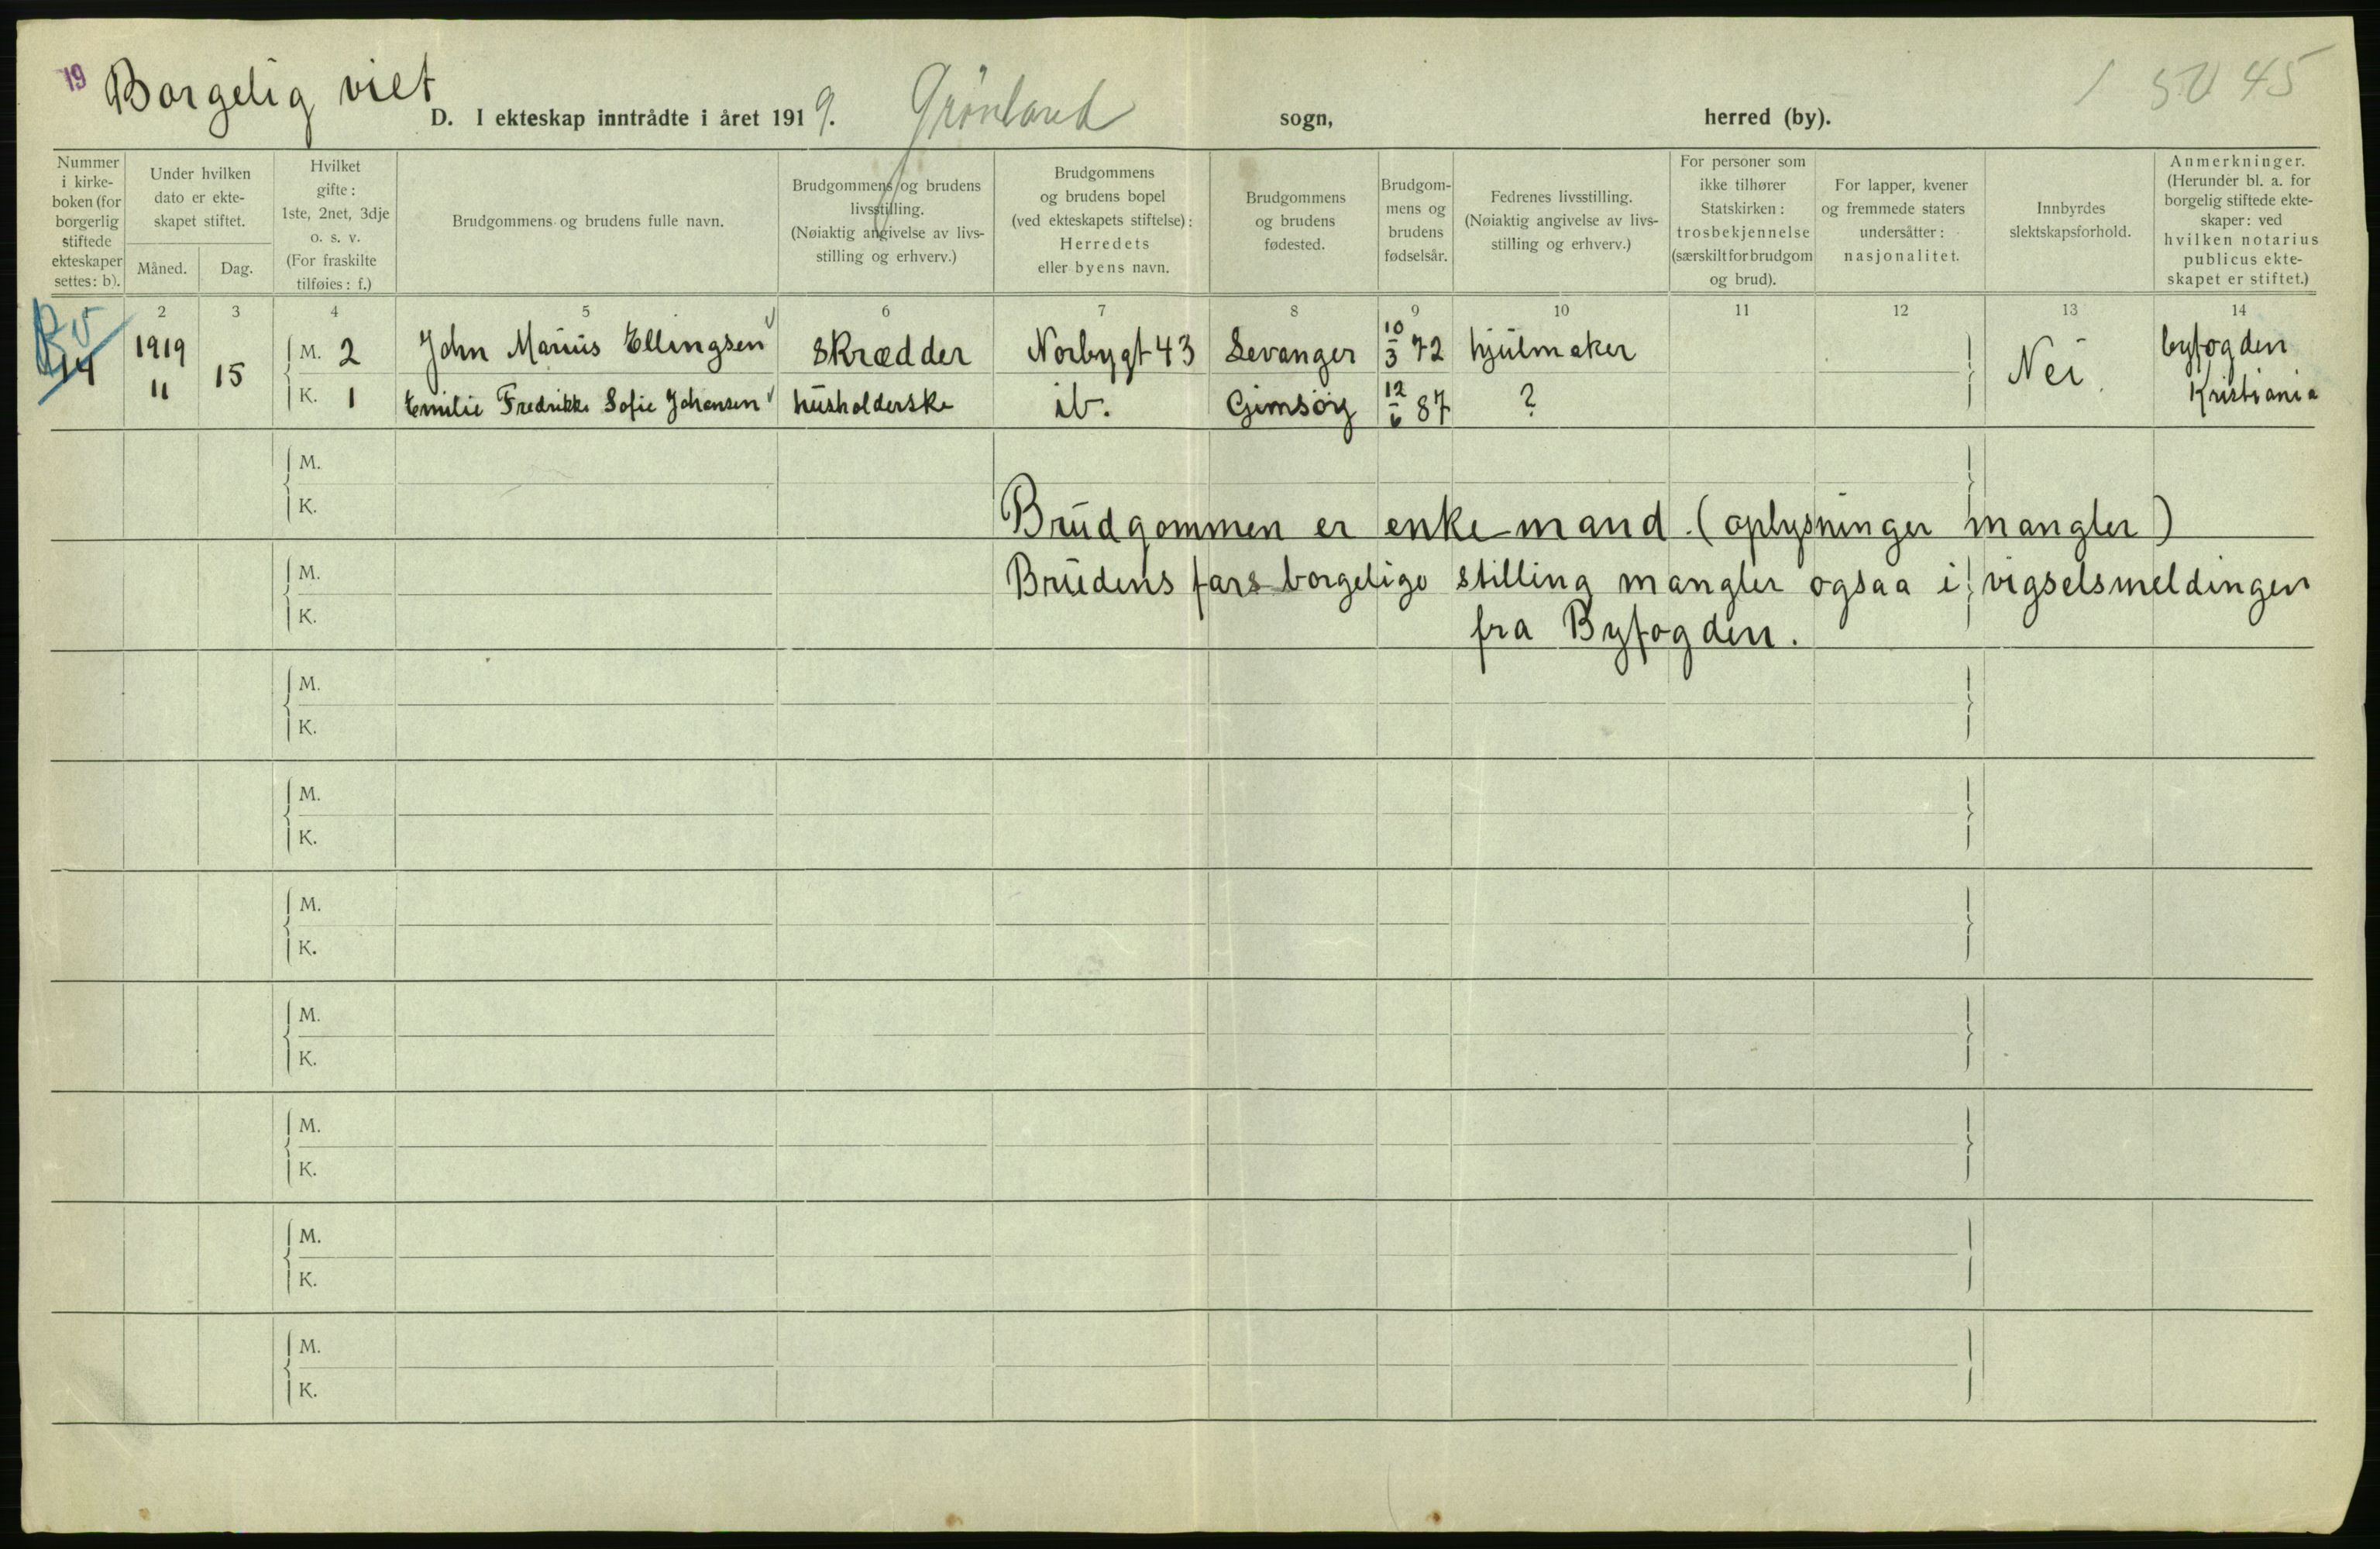 19 Borgelig viet
D. I ekteskap inntrådte i året 1919. Grönland sogn, herred (by).
Nummer i kirke-boken (for borgerlig stiftede ekteskaper settes: b).
Under hvilken dato er ekte-skapet stiftet.
Måned. Dag.
Hvilket gifte: 1ste, 2net, 3dje o. s. v. (For fraskilte tilføies: f.)
Brudgommens og brudens fulle navn.
Brudgommens og brudens livsstilling. (Nøiaktig angivelse av livs-stilling og erhverv.)
Brudgommens og brudens bopel (ved ekteskapets stiftelse): Herredets eller byens navn.
Brudgommens og brudens fødested.
Brudgom-mens og brudens fødselsår.
Fedrenes livsstilling. (Nøiaktig angivelse av livs-stilling og erhverv.)
For personer som ikke tilhører Statskirken: trosbekjennelse (særskilt for brudgom og brud).
For lapper, kvener og fremmede staters undersåtter: nasjonalitet.
Innbyrdes slektskapsforhold.
Anmerkninger. (Herunder bl. a. for borgelig stiftede ekte-skaper: ved hvilken notarius publicus ekte-skapet er stiftet.)
1 2 3 4 5 6 7 8 9 10 11 12 13 14
14 1919 11 15
M. 2 John Marius Ellingsen skrædder Norbygt 43 Levanger 10/3 72 hjulmaker Nei. byfogden
K. 1 Emilie Fredrikke Sofie Johansen husholderske ib. Gimsöy 12/6 87 ? Kristiania
M.
K.
Brudgommen er enkemand. (oplysninger mangler)
M.
Brudens fars borgelige stilling mangler ogsaa i vigselsmeldingen
K.
fra Byfogden.
M.
K.
M.
K.
M.
K.
M.
K.
M.
K.
M.
K.
M.
K.